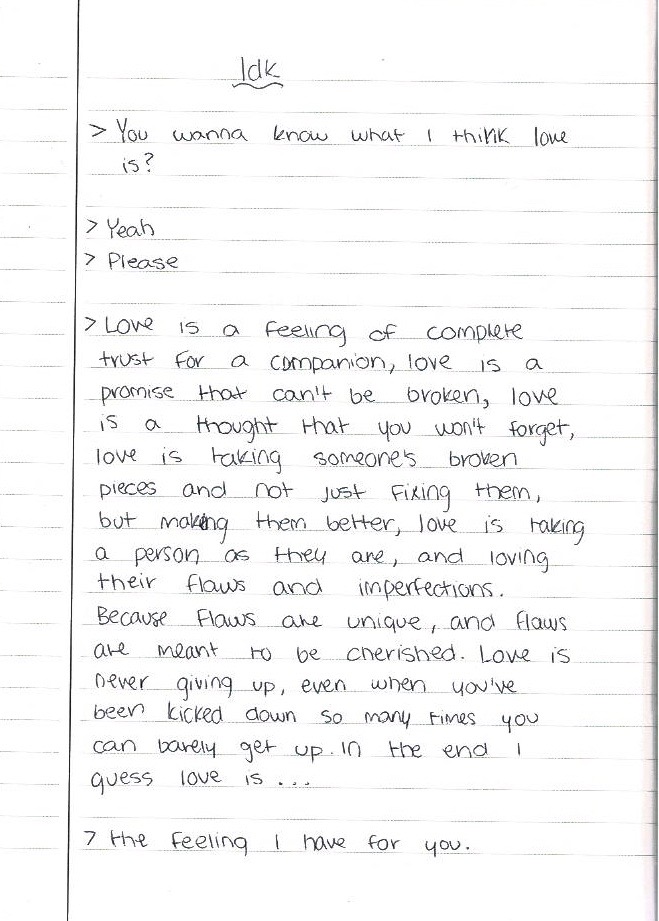 Idk
> You wanna know what I think love
is?
> Yeah
> Please
> Love is a feeling of complete
trust for a companion, love is a
promise that can't be broken, love
is a thought that you won't forget,
love is taking someone's broken
pieces and not just fixing them,
but making them better, love is taking
a person as they are, and loving
their flaws and imperfections.
Because flaws are unique, and flaws
are meant to be cherished. Love is
never giving up, even when you've
been kicked down so many times you
can barely get up. In the end I
guess love is ...
> the feeling I have for you.